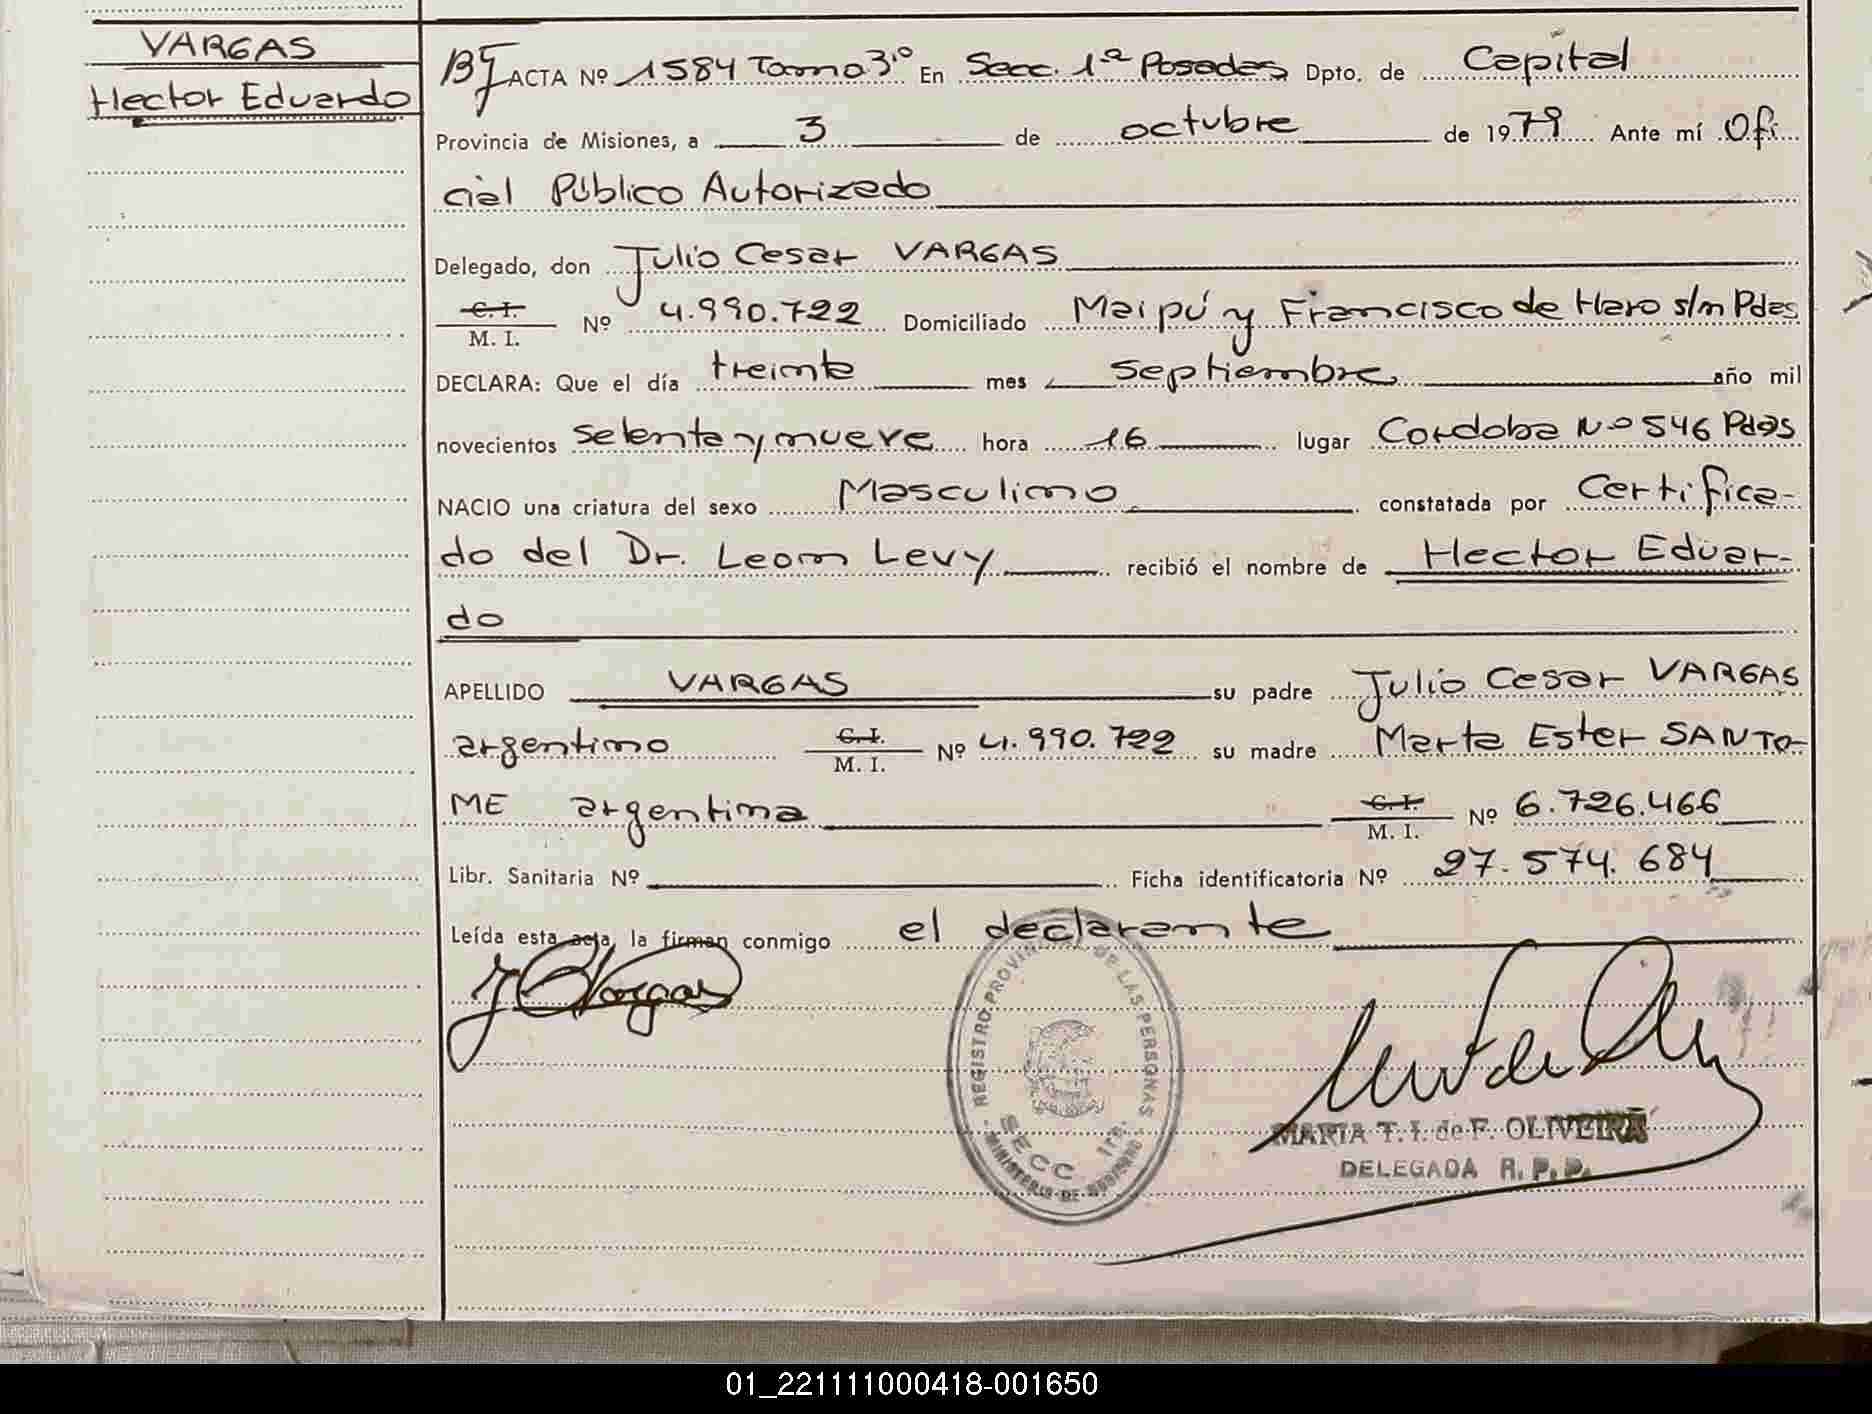 VARGAS
Hector Eduardo
ACTA Nº 1584 Tomo 3º En Secc. 1ª Posadas Dpto. de Capital
Provincia de Misiones, a 3 de octubre de 1979 Ante mí Ofi
cial Público Autorizado
Delegado, don Julio Cesar VARGAS
C. I.
M. I. Nº 4.990.722 Domiciliado Maipú y Francisco de Haro s/n Pdas
DECLARA: Que el día treinta mes septiembre año mil
novecientos setenta y nueve hora 16 lugar Cordoba Nº 546 Pdas
NACIO una criatura del sexo Masculino constatada por Certifica-
do del Dr. Leon Levy recibió el nombre de Hector Eduar-
do
APELLIDO VARGAS su padre Julio Cesar VARGAS
argentino C. I. M. I. Nº 4.990.722 su madre Marta Ester SANTO-
ME argentina C. I. M. I. Nº 6.726.466
Libr. Sanitaria Nº Ficha identificatoria Nº 27.574.684
Leída esta acta, la firman conmigo el declarante
J C Vargas
REGISTRO PROVINCIAL DE LAS PERSONAS
SECC. 1ra.
MINISTERIO DE GOBIERNO
MARIA T. I. de F. OLIVEIRA
DELEGADA R. P. P.
01_221111000418-001650